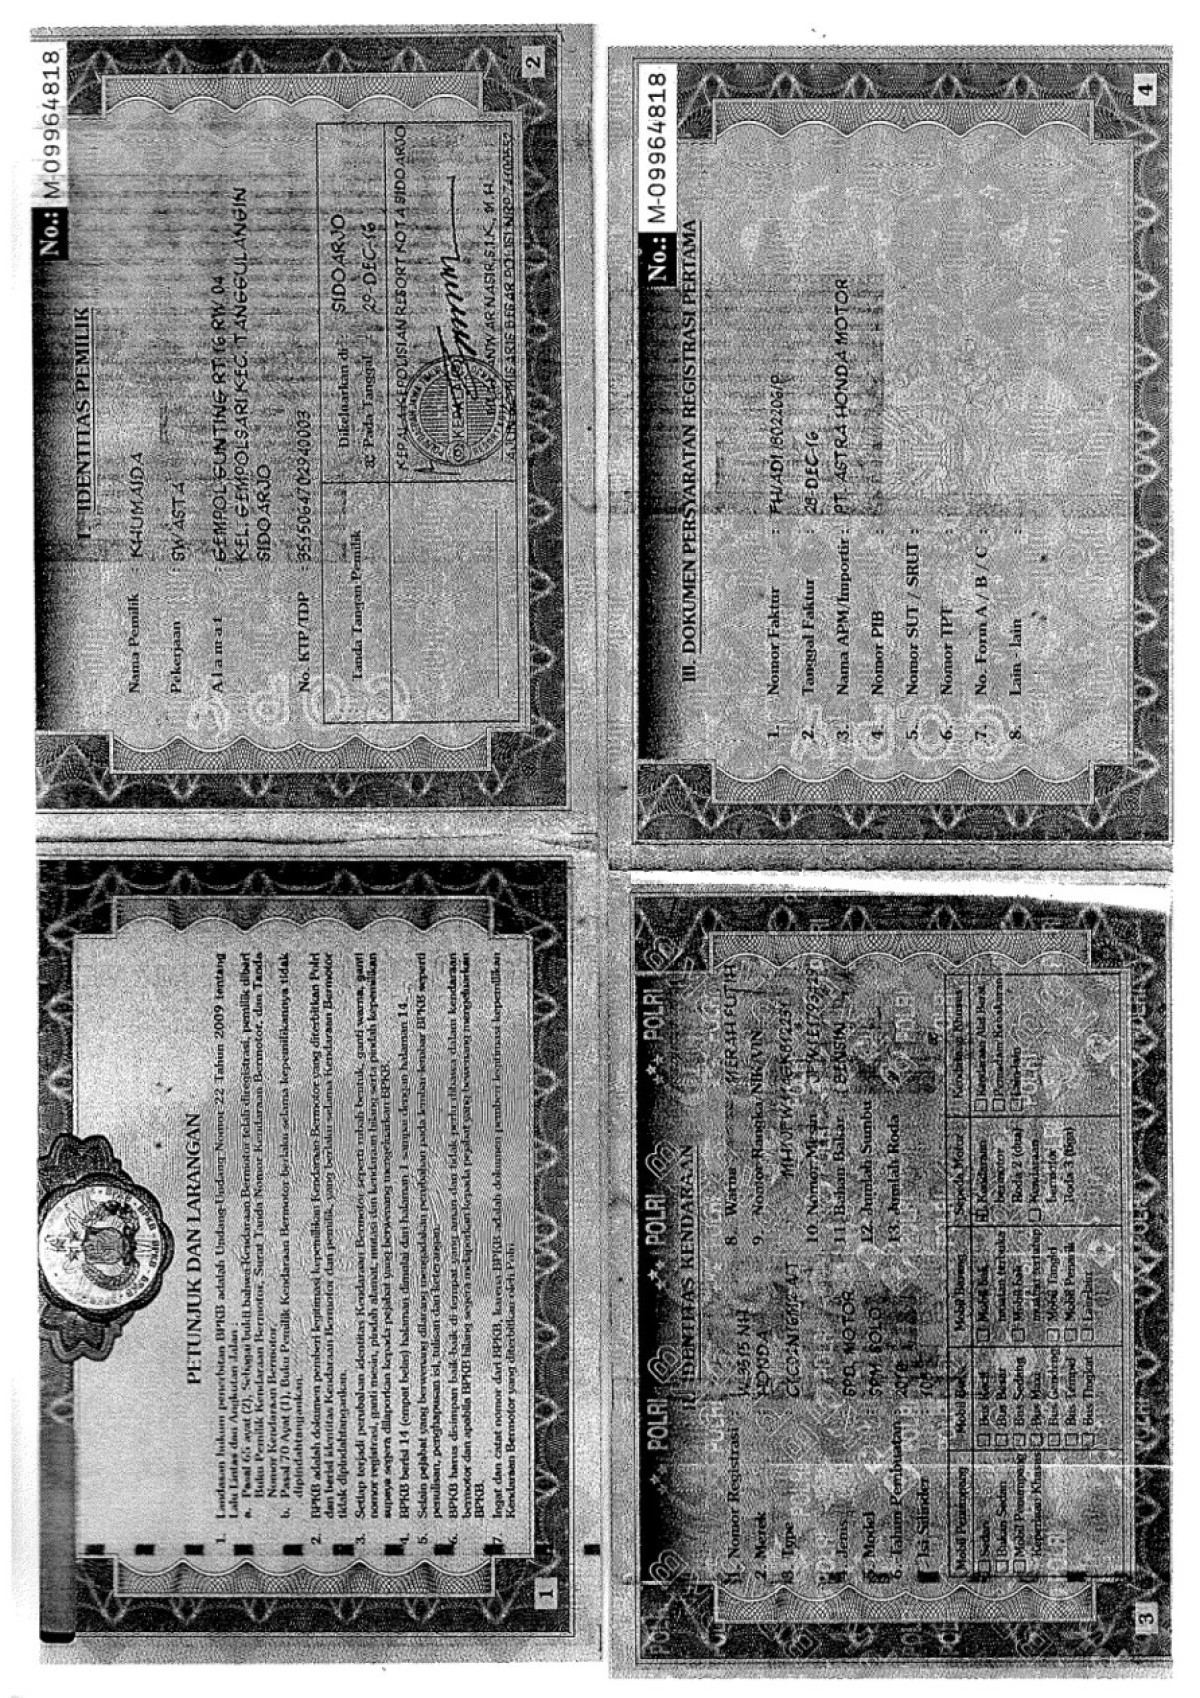 PETUNJUK DAN LARANGAN
1. Landasan hukum penerbitan BPKB adalah Undang-Undang Nomor 22 Tahun 2009 tentang
Lalu Lintas dan Angkutan Jalan :
a. Pasal 65 ayat (2), Sebagai bukti bahwa Kendaraan Bermotor telah diregistrasi, pemilik diberi
Buku Pemilik Kendaraan Bermotor, Surat Tanda Nomor Kendaraan Bermotor, dan Tanda
Nomor Kendaraan Bermotor.
b. Pasal 70 Ayat (1), Buku Pemilik Kendaraan Bermotor berlaku selama kepemilikannya tidak
dipindahtangankan.
2. BPKB adalah dokumen pemberi legitimasi kepemilikan Kendaraan Bermotor yang diterbitkan Polri
dan berisi identitas Kendaraan Bermotor dan pemilik, yang berlaku selama Kendaraan Bermotor
tidak dipindahtangankan.
3. Setiap terjadi perubahan identitas Kendaraan Bermotor seperti rubah bentuk, ganti warna, ganti
nomor registrasi, ganti mesin, pindah alamat, mutasi dan kendaraan hilang serta pindah kepemilikan
supaya segera dilaporkan kepada pejabat yang berwenang mengeluarkan BPKB.
4. BPKB berisi 14 (empat belas) halaman dimulai dari halaman 1 sampai dengan halaman 14.
5. Selain pejabat yang berwenang dilarang mengadakan perubahan pada lembar-lembar BPKB seperti
penulisan, penghapusan isi, tulisan dan keterangan.
6. BPKB harus disimpan baik-baik di tempat yang aman dan tidak perlu dibawa dalam kendaraan
bermotor dan apabila BPKB hilang segera melaporkan kepada pejabat yang berwenang mengeluarkan
BPKB.
7. Ingat dan catat nomor dari BPKB, karena BPKB adalah dokumen pemberi legitimasi kepemilikan
Kendaraan Bermotor yang diterbitkan oleh Polri.
1
No.: M-09964818
I. IDENTITAS PEMILIK
Nama Pemilik : KHUMAIDA
Pekerjaan : SWASTA
Alamat : GEMPOL GUNTING RT 16 RW 04
KEL. GEMPOLSARI KEC. TANGGULANGIN
SIDOARJO
No. KTP/TDP : 3515064702940003
Tanda Tangan Pemilik
Dikeluarkan di : SIDOARJO
& Pada Tanggal : 29-DEC-16
KEPALA KEPOLISIAN RESORT KOTA SIDOARJO
ANWAR NASIR, S.I.K., M.H.
AJUN KOMISARIS BESAR POLISI NRP
2
POLRI POLRI POLRI POLRI
II. IDENTITAS KENDARAAN
1. Nomor Registrasi : W 3515 NH
2. Merek : HONDA
3. Type
4. Jenis : SPD. MOTOR
5. Model : SPM SOLO
6. Tahun Pembuatan : 2016
7. Isi Silinder : 108
8. Warna : MERAH PUTIH
9. Nomor Rangka/NIK/VIN
10. Nomor Mesin
11. Bahan Bakar : BENSIN
12. Jumlah Sumbu
13. Jumlah Roda
Mobil Penumpang Mobil Bus Mobil Barang Sepeda Motor Kendaraan Khusus
Sedan
Bukan Sedan
Mobil Penumpang
Keperluan Khusus
Bus Kecil
Bus Besar
Bus Sedang
Bus Maxi
Bus Gandeng
Bus Tempel
Bus Tingkat
Mobil bak
muatan terbuka
Mobil bak
muatan tertutup
Mobil Tangki
Mobil Penarik
Kendaraan
bermotor
Roda 2 (dua)
Kendaraan
bermotor
Roda 3 (tiga)
Kendaraan Alat Berat
Pemadam Kebakaran
Lain-lain
3
No.: M-09964818
III. DOKUMEN PERSYARATAN REGISTRASI PERTAMA
1. Nomor Faktur : FH/AD/1802206/P
2. Tanggal Faktur : 28-DEC-16
3. Nama APM/Importir : PT. ASTRA HONDA MOTOR
4. Nomor PIB :
5. Nomor SUT / SRUT :
6. Nomor TPT :
7. No. Form A / B / C :
8. Lain - lain :
4